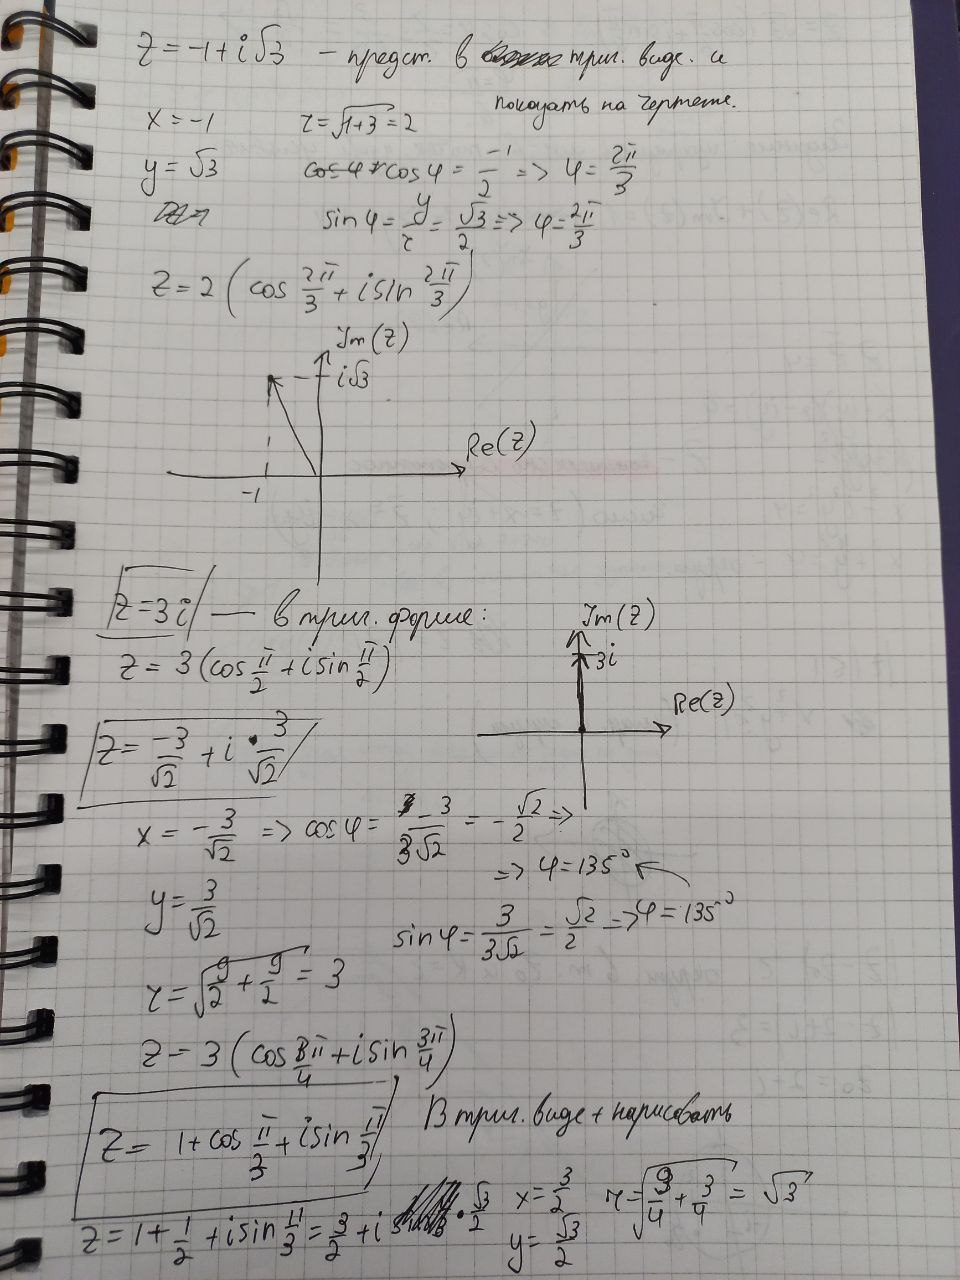 z = -1 + i√3 — предст. в триг. виде. и
показать на чертеже.
x = -1   r = √(1+3) = 2
y = √3   cos φ = -1/2 => φ = 2π/3
sin φ = y/r = √3/2 => φ = 2π/3
z = 2 (cos 2π/3 + i sin 2π/3)
Im(z)
i√3
Re(z)
-1
z = 3i — в триг. форме:
z = 3 (cos π/2 + i sin π/2)
Im(z)
3i
Re(z)
z = -3/√2 + i · 3/√2
x = -3/√2 => cos φ = -3/3√2 = -√2/2 =>
=> φ = 135°
y = 3/√2
sin φ = 3/3√2 = √2/2 => φ = 135°
r = √(9/2 + 9/2) = 3
z = 3 (cos 3π/4 + i sin 3π/4)
z = 1 + cos π/3 + i sin π/3   В триг. виде + нарисовать
z = 1 + 1/2 + i sin π/3 = 3/2 + i · √3/2   x = 3/2   r = √(9/4 + 3/4) = √3
y = √3/2